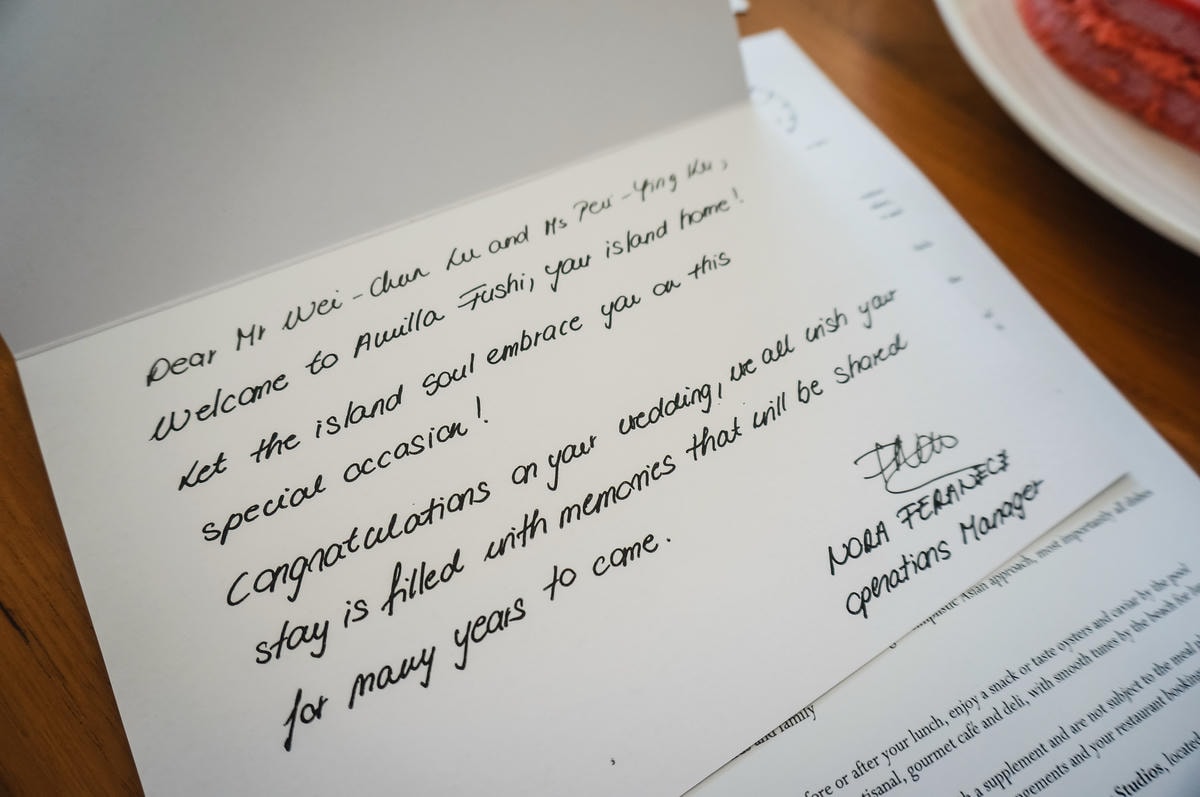 Dear Mr Wei-Chun Lu and Ms Pei-Ying Ku,
Welcome to Amilla Fushi, your island home!
Let the island soul embrace you on this
special occasion!
Congratulations on your wedding, we all wish your
stay is filled with memories that will be shared
for many years to come.
NORA FERANECZ
Operations Manager
Asian approach, most importantly all dishes
and family
or after your lunch, enjoy a snack or taste oysters and caviar by the pool
gourmet café and deli, with smooth tunes by the beach for
a supplement and are not subject to the meal
and your restaurant booking
Studios, located